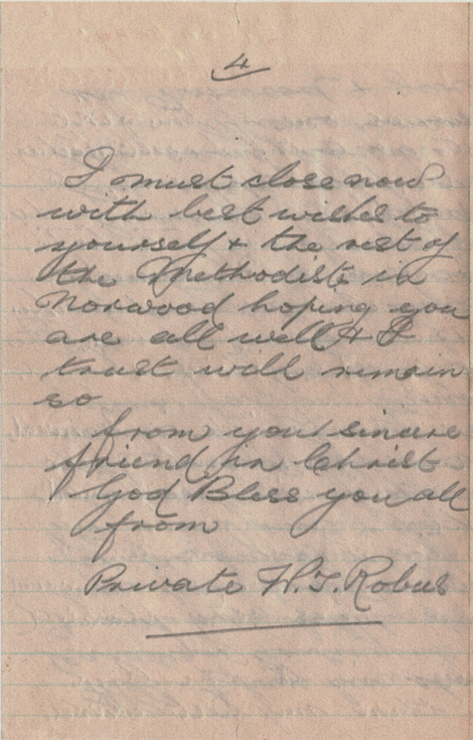 4
I must close now
with best wishes to
yourself & the rest of
the Methodists in
Norwood hoping you
are all well & I
trust will remain
so
from your sincere
friend in Christ
God Bless you all
from
Private H.J. Robus